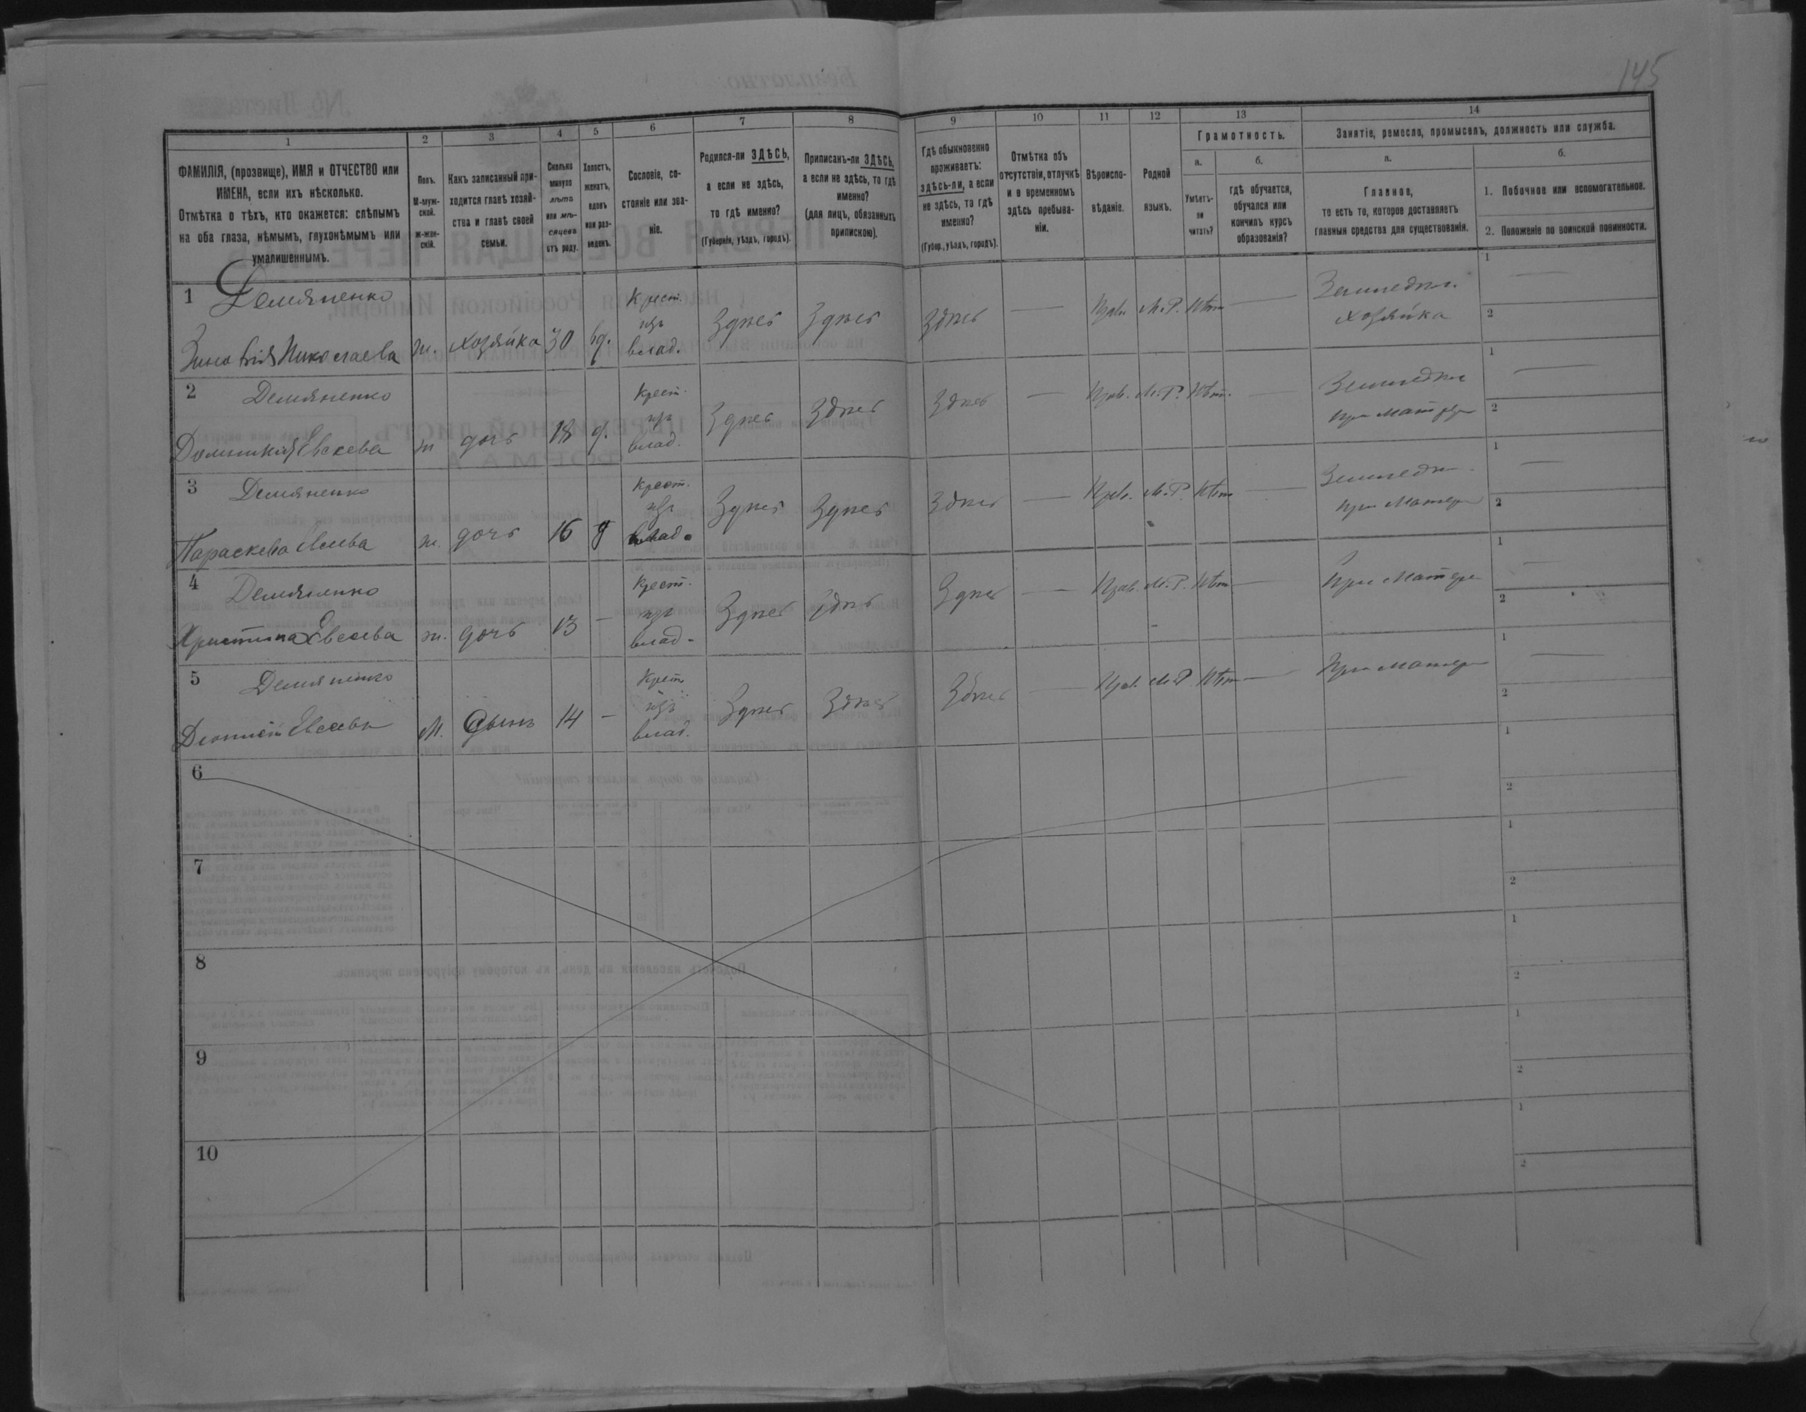 145
1
2
3
4
5
6
7
8
9
10
11
12
13
14
ФАМИЛІЯ, (прозвище), ИМЯ и ОТЧЕСТВО или
ИМЕНА, если ихъ нѣсколько.
Отмѣтка о тѣхъ, кто окажется: слѣпымъ
на оба глаза, нѣмымъ, глухонѣмымъ или
умалишеннымъ.
Полъ.
М-муж-
ской.
Ж-жен-
скій.
Какъ записанный при-
ходится главѣ хозяй-
ства и главѣ своей
семьи.
Сколько
минуло
лѣтъ
или мѣ-
сяцевъ
отъ роду.
Холостъ,
женатъ,
вдовъ
или раз-
веденъ.
Сословіе, со-
стояніе или зва-
ніе.
Родился-ли ЗДѢСЬ,
а если не здѣсь,
то гдѣ именно?
(Губернія, уѣздъ, городъ).
Приписанъ-ли ЗДѢСЬ,
а если не здѣсь, то гдѣ
именно?
(для лицъ, обязанныхъ
припискою).
Гдѣ обыкновенно
проживаетъ:
здѣсь-ли, а если
не здѣсь, то гдѣ
именно?
(Губер., уѣздъ, городъ).
Отмѣтка объ
отсутствіи, отлучкѣ
и о временномъ
здѣсь пребыва-
ніи.
Вѣроиспо-
вѣданіе.
Родной
языкъ.
Грамотность.
а.
б.
Умѣетъ-
ли
читать?
гдѣ обучается,
обучался или
кончилъ курсъ
образованія?
Занятіе, ремесло, промыселъ, должность или служба.
а.
б.
Главное,
то есть то, которое доставляетъ
главныя средства для существованія.
1. Побочное или вспомогательное.
2. Положеніе по воинской повинности.
1 Демяненко
Зиновія Николаева ж. хозяйка 30 вд. Крест. изъ влад. Здесь Здесь Здесь — Прав. М.Р. Нѣт — Земледел. хозяйка
1 —
2
2 Демяненко
Домникія Евсеева ж дочь 18 д. Крест. изъ влад. Здесь Здесь Здесь — Прав. М.Р. Нѣт. — Земледел при матери
1 —
2
3 Демяненко
Параскева Евсеева ж. дочь 16 д Крест. изъ влад. Здесь Здесь Здесь — Прав. М.Р. Нѣт — Земледел при матери
1 —
2
4 Демяненко
Христина Евсеева ж. дочь 13 — Крест. изъ влад. Здесь Здесь Здесь — Прав. М.Р. Нѣт — При матери
1 —
2
5 Демяненко
Деонисій Евсеевъ М. Сынъ 14 — Крест изъ влад. Здесь Здесь Здесь — Прав. М.Р. Нѣт — При матери
1 —
2
6
1
2
7
1
2
8
1
2
9
1
2
10
1
2